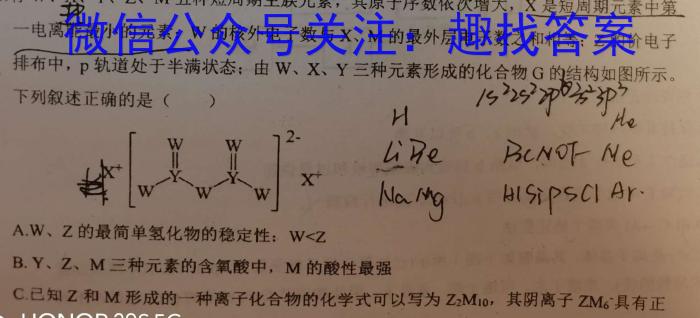 Z、M 五种短周期主族元素，其原子序数依次增大，X 是短周期元素中第
一电离能最小的元素，W 的核外电子数与 X、M 的最外层电子数之和相等，Z 的价电子
微信公众号关注：趣找答案
排布中，p 轨道处于半满状态；由 W、X、Y 三种元素形成的化合物 G 的结构如图所示。
下列叙述正确的是（ ）
1s²2s²2p⁶3s²3p³
H He
LiBe BCNOF Ne
NaMg AlSiPSCl Ar.
2-
W W
X⁺ Y Y X⁺
W W W
A.W、Z 的最简单氢化物的稳定性：W<Z
B. Y、Z、M 三种元素的含氧酸中，M 的酸性最强
C.已知 Z 和 M 形成的一种离子化合物的化学式可以写为 Z₂M₁₀，其阴离子 ZM₆⁻具有正